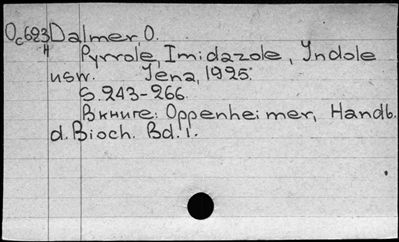 Oc623 Dalmer O.
H
Pyrrole, Imidazole, Indole
usw. Jena, 1925.
S. 243-266.
В книге: Oppenheimer, Handb.
d. Bioch. Bd. 1.